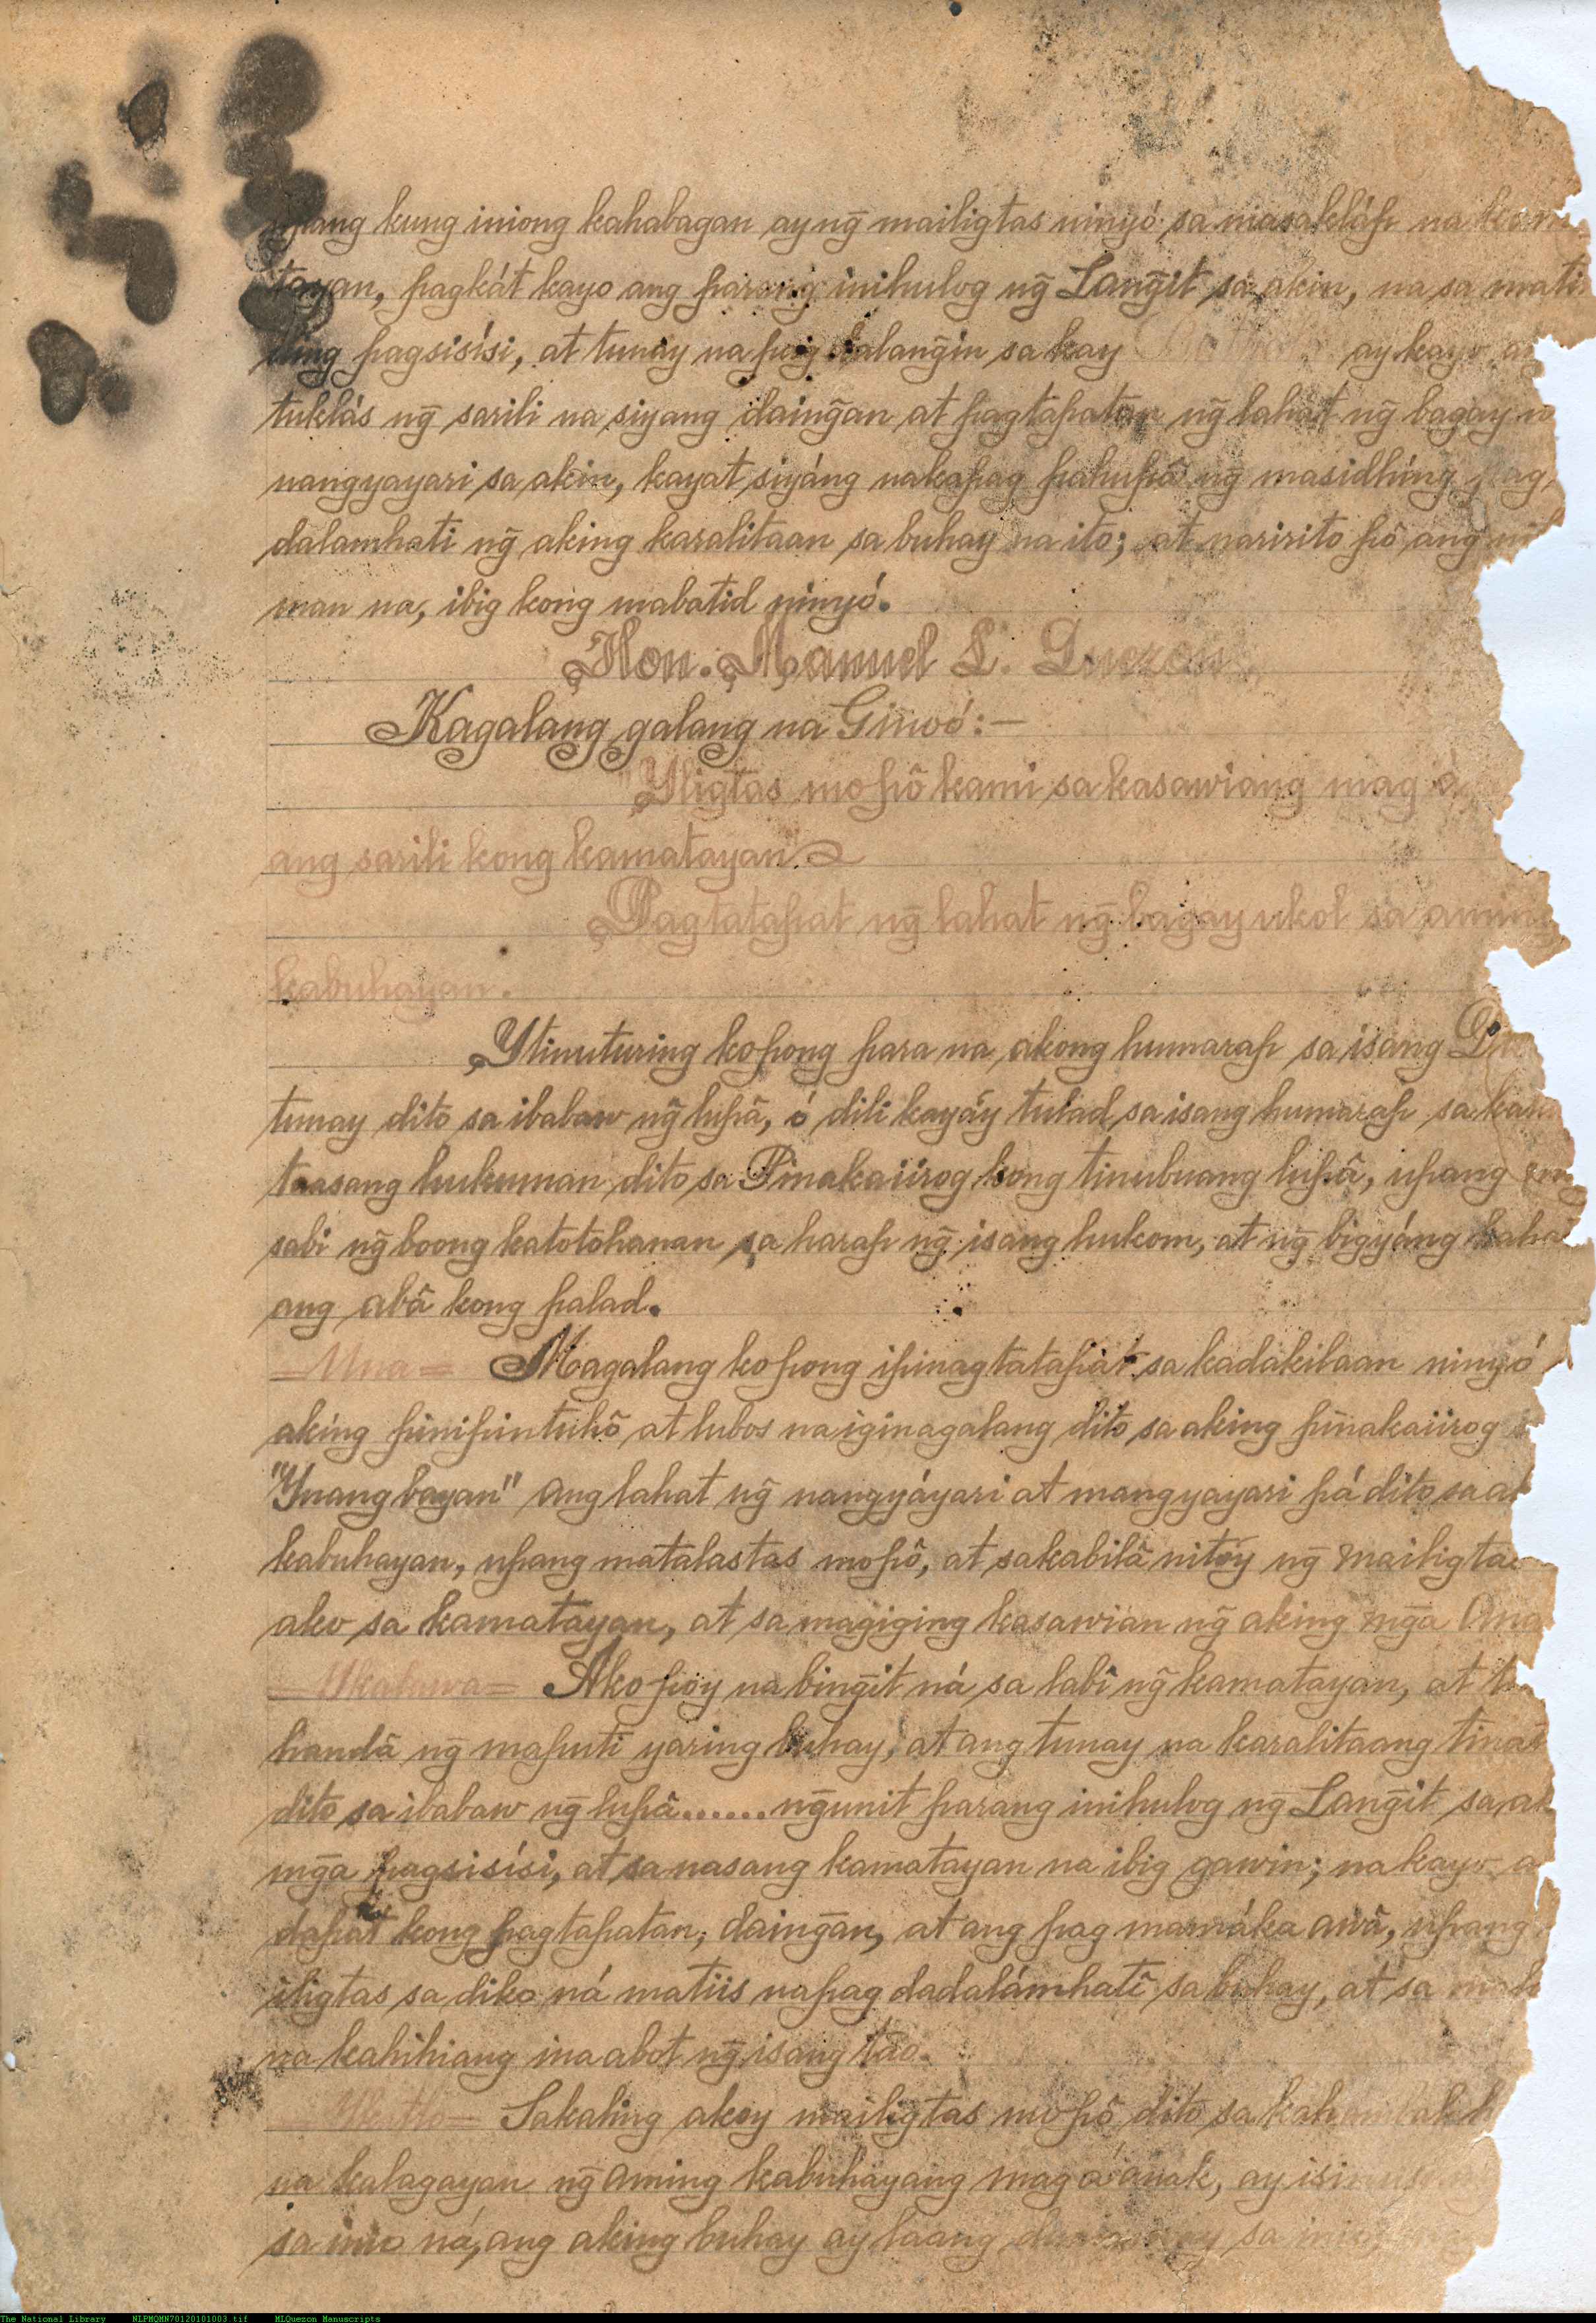 upang kung iniong kahabagan ay ng̃ mailigtas ninyó sa masakláp na kama
tayan, pagkát kayo ang parang inihulog ng̃ Lang̃it sa akin, na sa mati
ding pagsisísi, at tunay na pag dalang̃in sa kay ay kayo ang
tuklás ng̃ sarili na siyang daing̃an at pagtapatan ng̃ lahat ng̃ bagay na
nangyayari sa akin, kayat siyáng nakapag pahupâ ng̃ masidhíng pag,
dalamhati ng̃ aking karalitaan sa buhay na ito; at naririto pô ang
man na, ibig kong mabatid ninyó.
Hon. Manuel L. Quezon
Kagalang galang na Ginoó:—
"Yligtas mo pô kami sa kasawiang mag a
ang sarili kong kamatayan"
Pagtatapat ng̃ lahat ng̃ bagay ukol sa aming
kabuhayan.
Ytinuturing ko pong para na akong humarap sa isang
tunay dito sa ibabaw ng̃ lupâ, ó dili kayáy tulad sa isang humarap sa kata
taasang hukuman dito sa Pinakaiirog kong tinubuang lupâ, upang
sabi ng̃ boong katotohanan sa harap ng̃ isang hukom, at ng̃ bigyáng
ang abâ kong palad.
=Una= Magalang ko pong ipinagtatapát sa kadakilaan ninyó
aking pinipintuhô at lubos na iginagalang dito sa aking pinakaiirog
"Ynang bayan" ang lahat ng̃ nangyáyari at mangyayari pá dito sa
kabuhayan, upang matalastas mo pô, at sakabilâ nitóy ng̃ mailigtas
ako sa kamatayan, at sa magiging kasawian ng̃ aking mg̃a Ana
=Ykalawa= Ako poy na bing̃it ná sa labî ng̃ kamatayan, at
handâ ng̃ maputi yaring buhay, at ang tunay na karalitaang
dito sa ibabaw ng̃ lupâ...... ng̃unit parang inihulog ng̃ Lang̃it sa
mg̃a pagsisísi, at sa nasang kamatayan na ibig gawin; na kayo
dapat kong pagtapatan, daing̃an, at ang pag mamáka awâ, upang
iligtas sa diko ná matiis na pag dadalámhatî sa buhay, at sa
na kahihiang ina abot ng̃ isang tao.
=Ykatlo= Sakaling akoy mailigtas mo pô dito sa
na kalagayan ng̃ aming kabuhayang mag a anak, ay
sa inio ná, ang aking buhay ay laang sa
The National Library NLPMQMN70120101003.tif MLQuezon Manuscripts